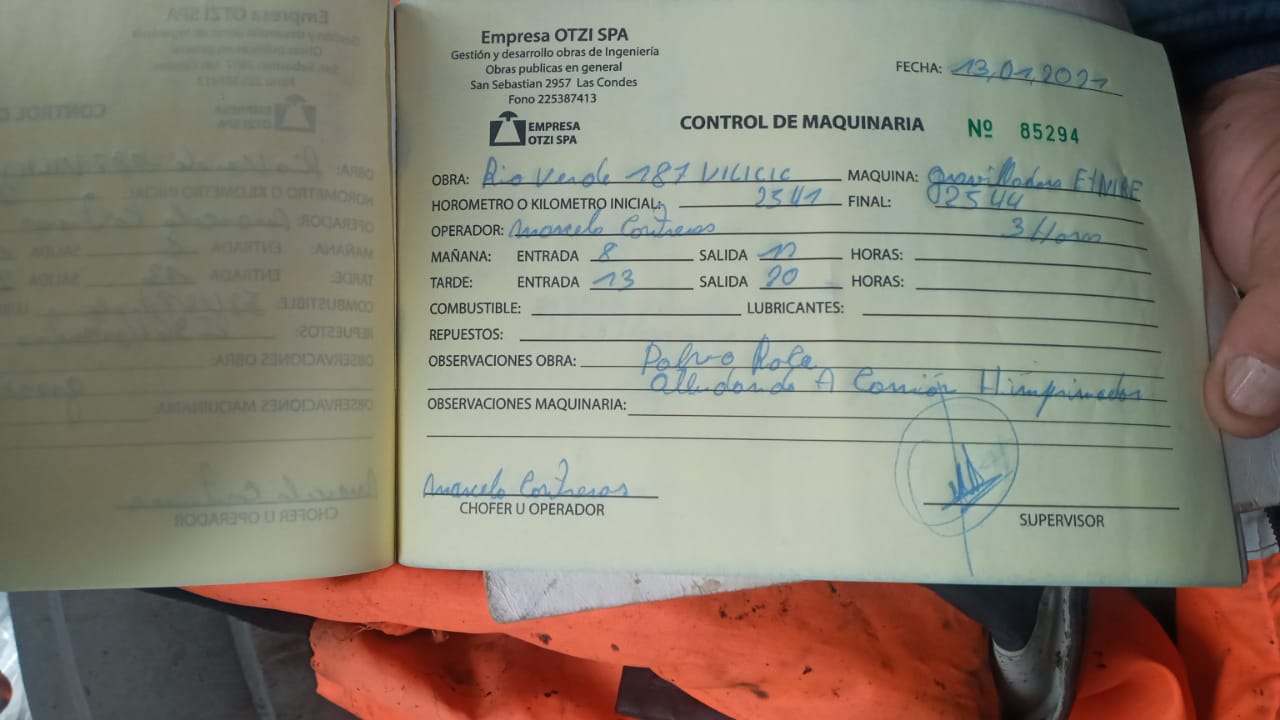 Empresa OTZI SPA
Gestión y desarrollo obras de Ingeniería
Obras publicas en general
San Sebastian 2957 Las Condes
Fono 225387413
EMPRESA
OTZI SPA
FECHA: 13,01,2021
CONTROL DE MAQUINARIA Nº 85294
OBRA: Rio Verde 187 VILICIC MAQUINA: gravilladora ETNIRE
HOROMETRO O KILOMETRO INICIAL: 2541 FINAL: 2544
OPERADOR: Marcelo Contreras 3 Horas
MAÑANA: ENTRADA 8 SALIDA 12 HORAS:
TARDE: ENTRADA 13 SALIDA 20 HORAS:
COMBUSTIBLE: LUBRICANTES:
REPUESTOS:
OBSERVACIONES OBRA:
Alludando A Camión Himprimador
OBSERVACIONES MAQUINARIA:
Marcelo Contreras
CHOFER U OPERADOR
SUPERVISOR